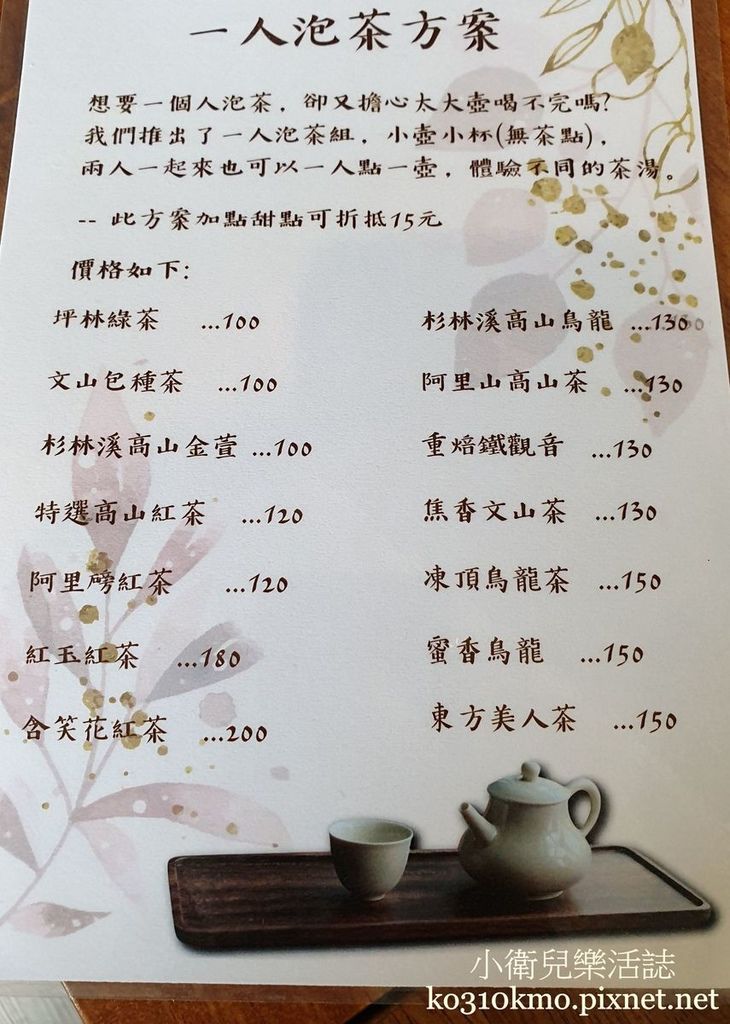 一人泡茶方案
想要一個人泡茶，卻又擔心太大壺喝不完嗎?
我們推出了一人泡茶組，小壺小杯(無茶點)，
兩人一起來也可以一人點一壺，體驗不同的茶湯。
-- 此方案加點甜點可折抵15元
價格如下:
坪林綠茶 ...100
文山包種茶 ...100
杉林溪高山金萱 ...100
特選高山紅茶 ...120
阿里磅紅茶 ...120
紅玉紅茶 ...180
含笑花紅茶 ...200
杉林溪高山烏龍 ...130
阿里山高山茶 ...130
重焙鐵觀音 ...130
焦香文山茶 ...130
凍頂烏龍茶 ...150
蜜香烏龍 ...150
東方美人茶 ...150
小衛兒樂活誌
ko310kmo.pixnet.net